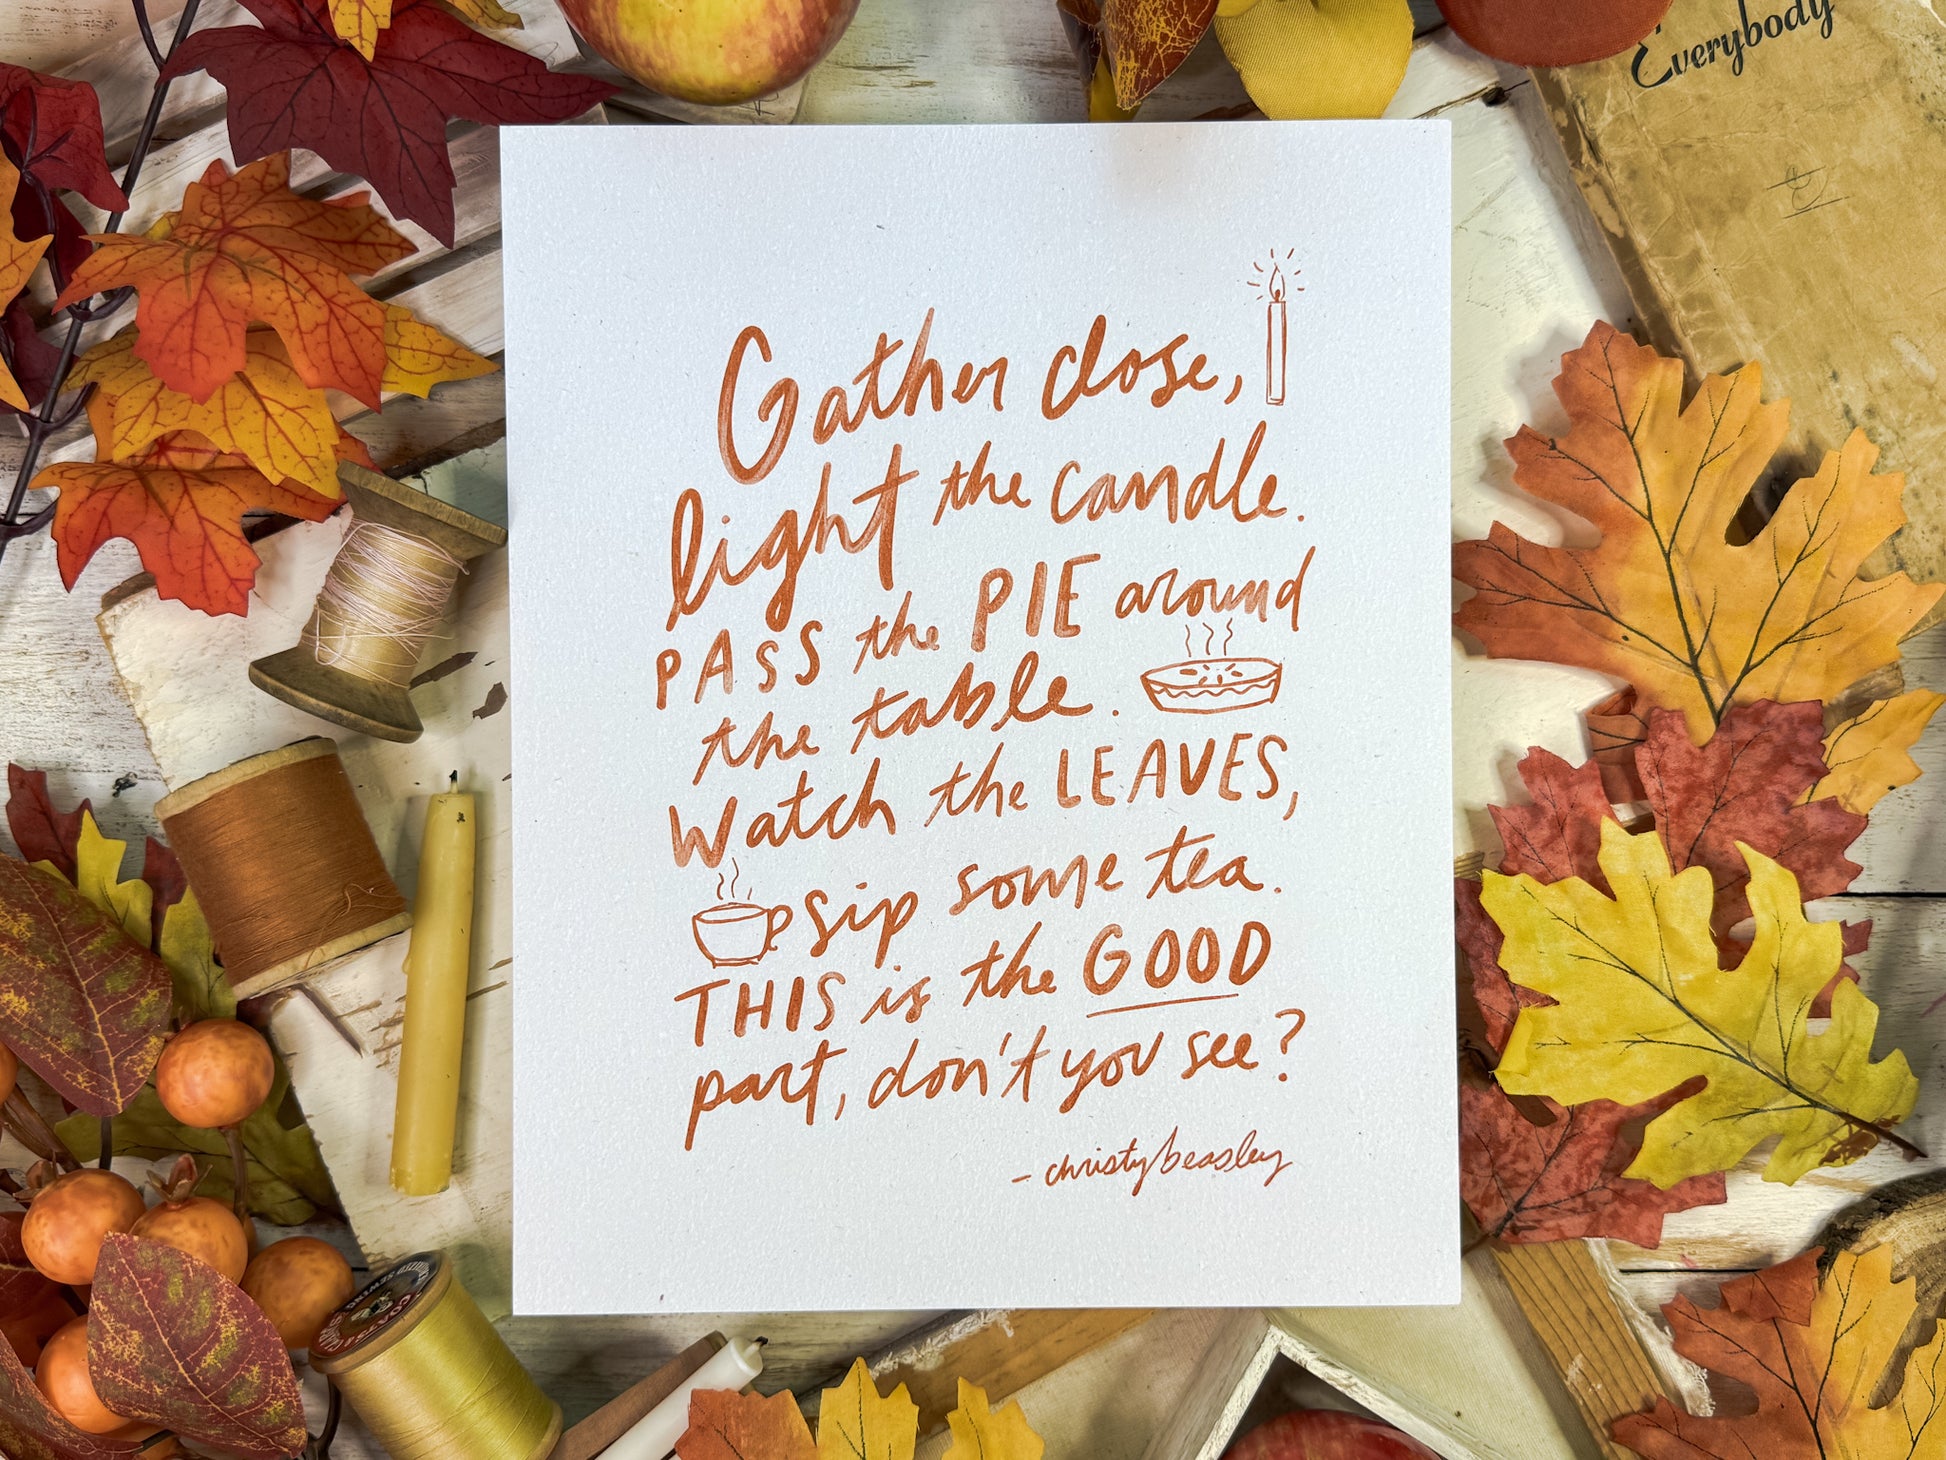 Everybody
Gather close,
light the candle.
PASS the PIE around
the table.
Watch the LEAVES,
sip some tea.
THIS is the GOOD
part, don't you see?
- christybeasley